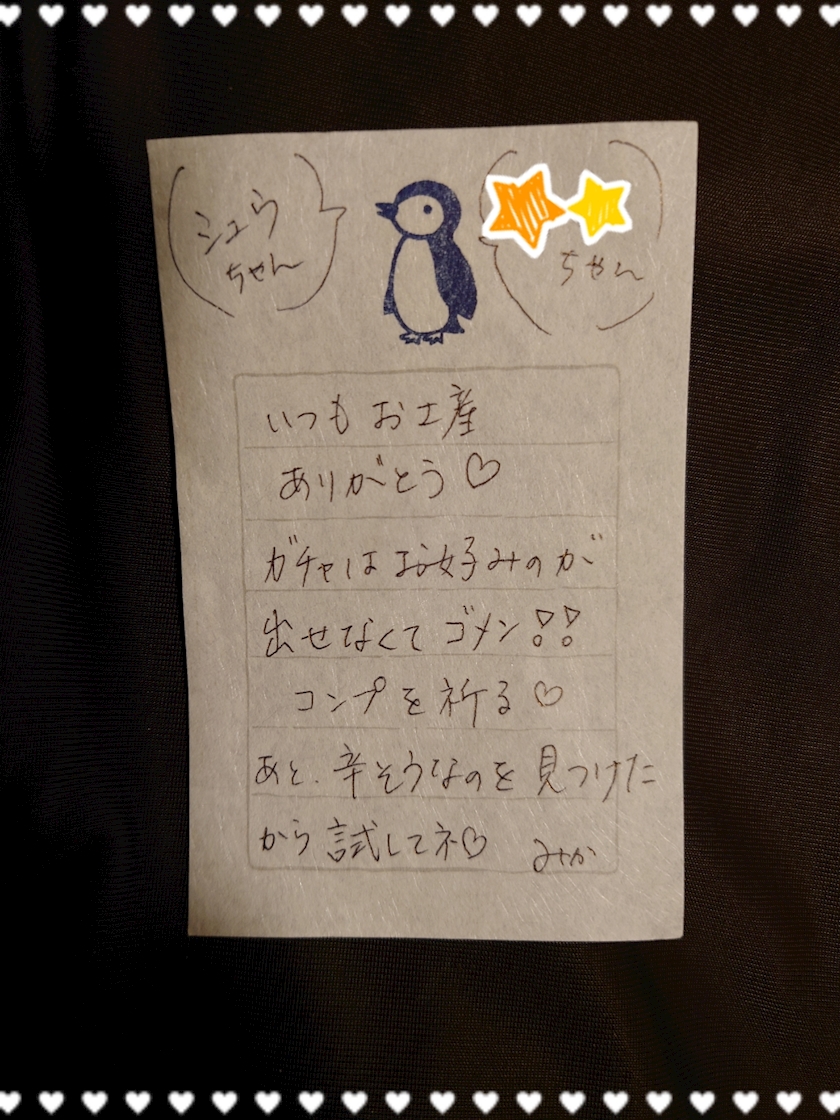 シュウ
ちゃん
ちゃん
いつもお土産
ありがとう♡
ガチャはお好みのが
出せなくてゴメン!!
コンプを祈る♡
あと、辛そうなのを見つけた
から試してネ♡ みか